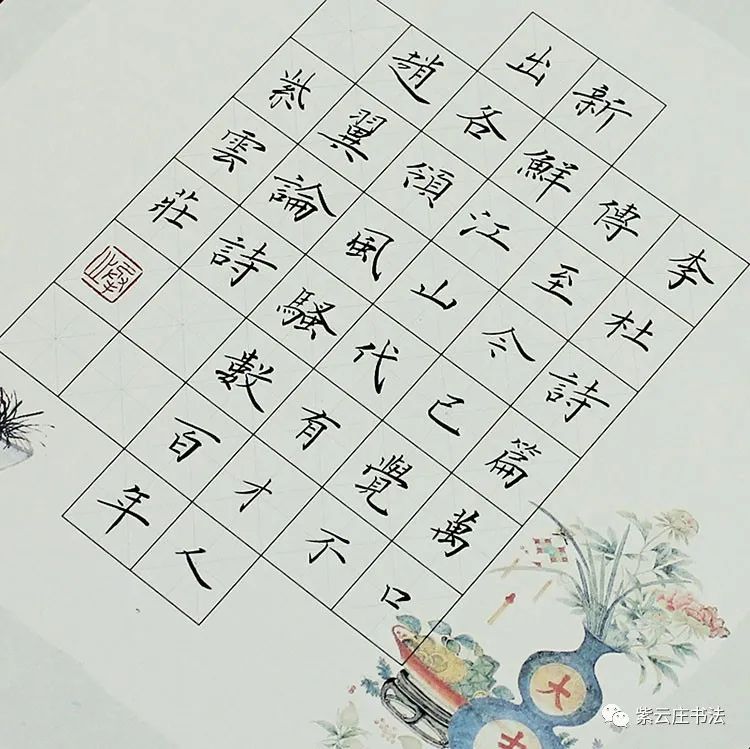 李杜詩篇萬口
傳至今已覺不
新鮮江山代有才人
出各領風騷數百年
趙翼論詩
紫雲莊
大
紫云庄书法